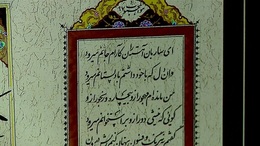 ای ساربان آهسته ران کارام جانم میرود
وان دل که با خود داشتم با دلستانم میرود
من مانده‌ام مهجور ازو بیچاره و رنجور ازو
گویی که نیشی دور ازو در استخوانم میرود
گفتم به نیرنگ و فسون پنهان کنم ریش درون